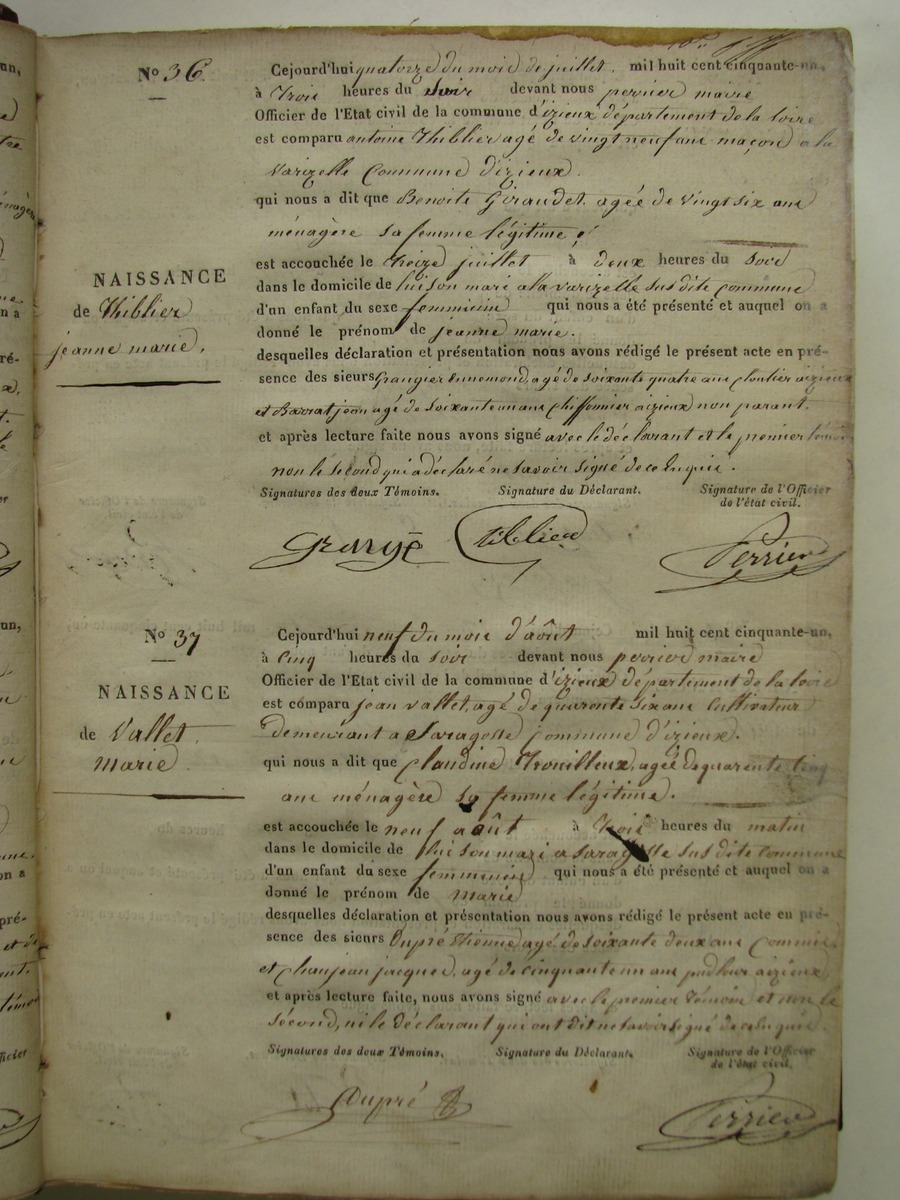 Nº 36
Cejourd'hui quatorze du mois de juillet. mil huit cent cinquante-un,
à trois heures du soir devant nous perrier maire
Officier de l'Etat civil de la commune d'izieux département de la loire
est comparu antoine Thiblier agé de vingt neuf ans maçon a la
Varizelle Commune d'izieux.
qui nous a dit que Benoite Giraudet, agée de vingt six ans
ménagère sa femme légitime
est accouchée le treize juillet à deux heures du soir
dans le domicile de lui son mari a la varizelle sus dite commune
d'un enfant du sexe femminin qui nous a été présenté et auquel on a
donné le prénom de jeanne marie.
desquelles déclaration et présentation nous avons rédigé le présent acte en pré-
sence des sieurs Grangier Ennemond, agé de soixante quatre ans cloutier a izieux
et Barrat jean agé de soixante un ans chiffonnier a izieux non parant.
et après lecture faite nous avons signé avec le déclarant et le premier témoin
non le second qui a déclaré ne savoir signé de ce enquis.
NAISSANCE
de Thiblier
jeanne marie,
Signatures des deux Témoins. Signature du Déclarant. Signature de l'Officier
de l'état civil.
tiblier Perrier
Nº 37
Cejourd'hui neuf du mois d'août mil huit cent cinquante-un,
à Cinq heures du soir devant nous perrier maire
Officier de l'Etat civil de la commune d'izieux département de la loire
est comparu jean vallet, agé de quarente six ans Cultivateur
demeurant a Saragosse Commune d'izieux.
qui nous a dit que Claudine Trouilleux, agée de quarente cinq
ans ménagère sa femme légitime.
est accouchée le neuf août à trois heures du matin
dans le domicile de lui son mari a saragosse sus dite commune
d'un enfant du sexe femminin qui nous a été présenté et auquel on a
donné le prénom de marie
desquelles déclaration et présentation nous avons rédigé le présent acte en pré-
sence des sieurs Dupré Etienne, agé de soixante deux ans Commis
et Chanjean jacques, agé de cinquante un ans a izieux
et après lecture faite, nous avons signé avec le premier témoin et non le
second, ni le déclarant qui ont dit ne savoir signé de ce enquis.
NAISSANCE
de Vallet
marie
Signatures des deux Témoins. Signature du Déclarant. Signature de l'Officier
de l'état civil.
Dupré Perrier